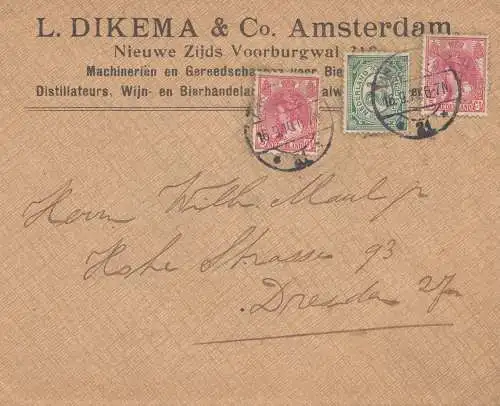 L. DIKEMA & Co. Amsterdam.
Nieuwe Zijds Voorburgwal
Machineriën en Gereedschappen voor Bier
Distillateurs, Wijn- en Bierhandelaars
NEDERLAND
16.9. 6-7N
Herrn Wilh.
Hohe Strasse 93
Dresden 27